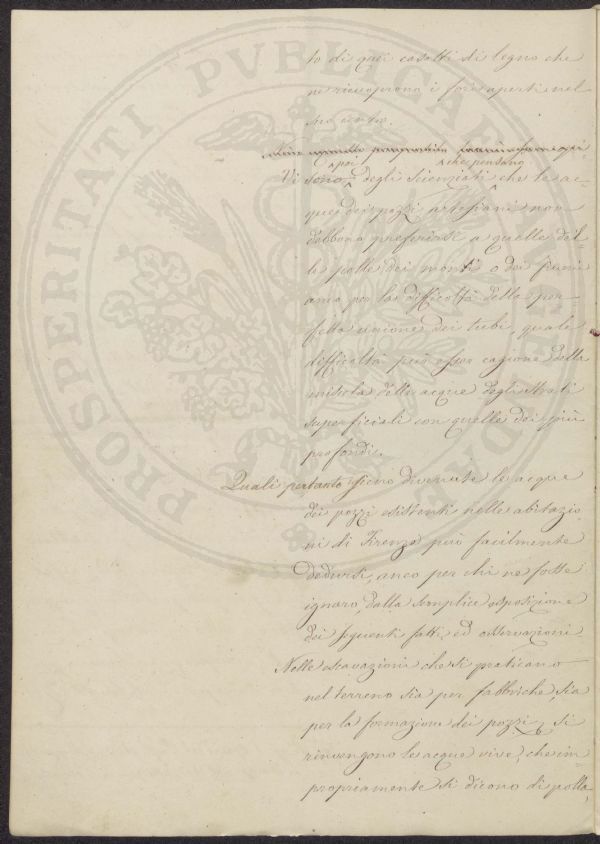 to di quei casotti di legno che
ne ricuoprono i fori aperti nel
suo centro.
poi che pensano
Vi sono degli Scienziati che le ac-
que dei pozzi artesiani non
debbano preferirsi a quelle del-
le polle dei monti o dei fiumi
anco per la difficoltà della per-
fetta unione dei tubi, quale
difficoltà può esser cagione della
miscela delle acque degli strati
superficiali con quelle dei più
profondi.
Quali pertanto sieno divenute le acque
dei pozzi esistenti nelle abitazio
ni di Firenze può facilmente
dedursi, anco per chi ne fosse
ignaro, dalla semplice esposizione
dei seguenti fatti ed osservazioni
Nelle escavazioni che si praticano
nel terreno sia per fabbriche, sia
per la formazione dei pozzi, si
rinvengono le acque vive, che im-
propriamente si dicono di polla,
PROSPERITATI PVBLICAE AVGENDAE